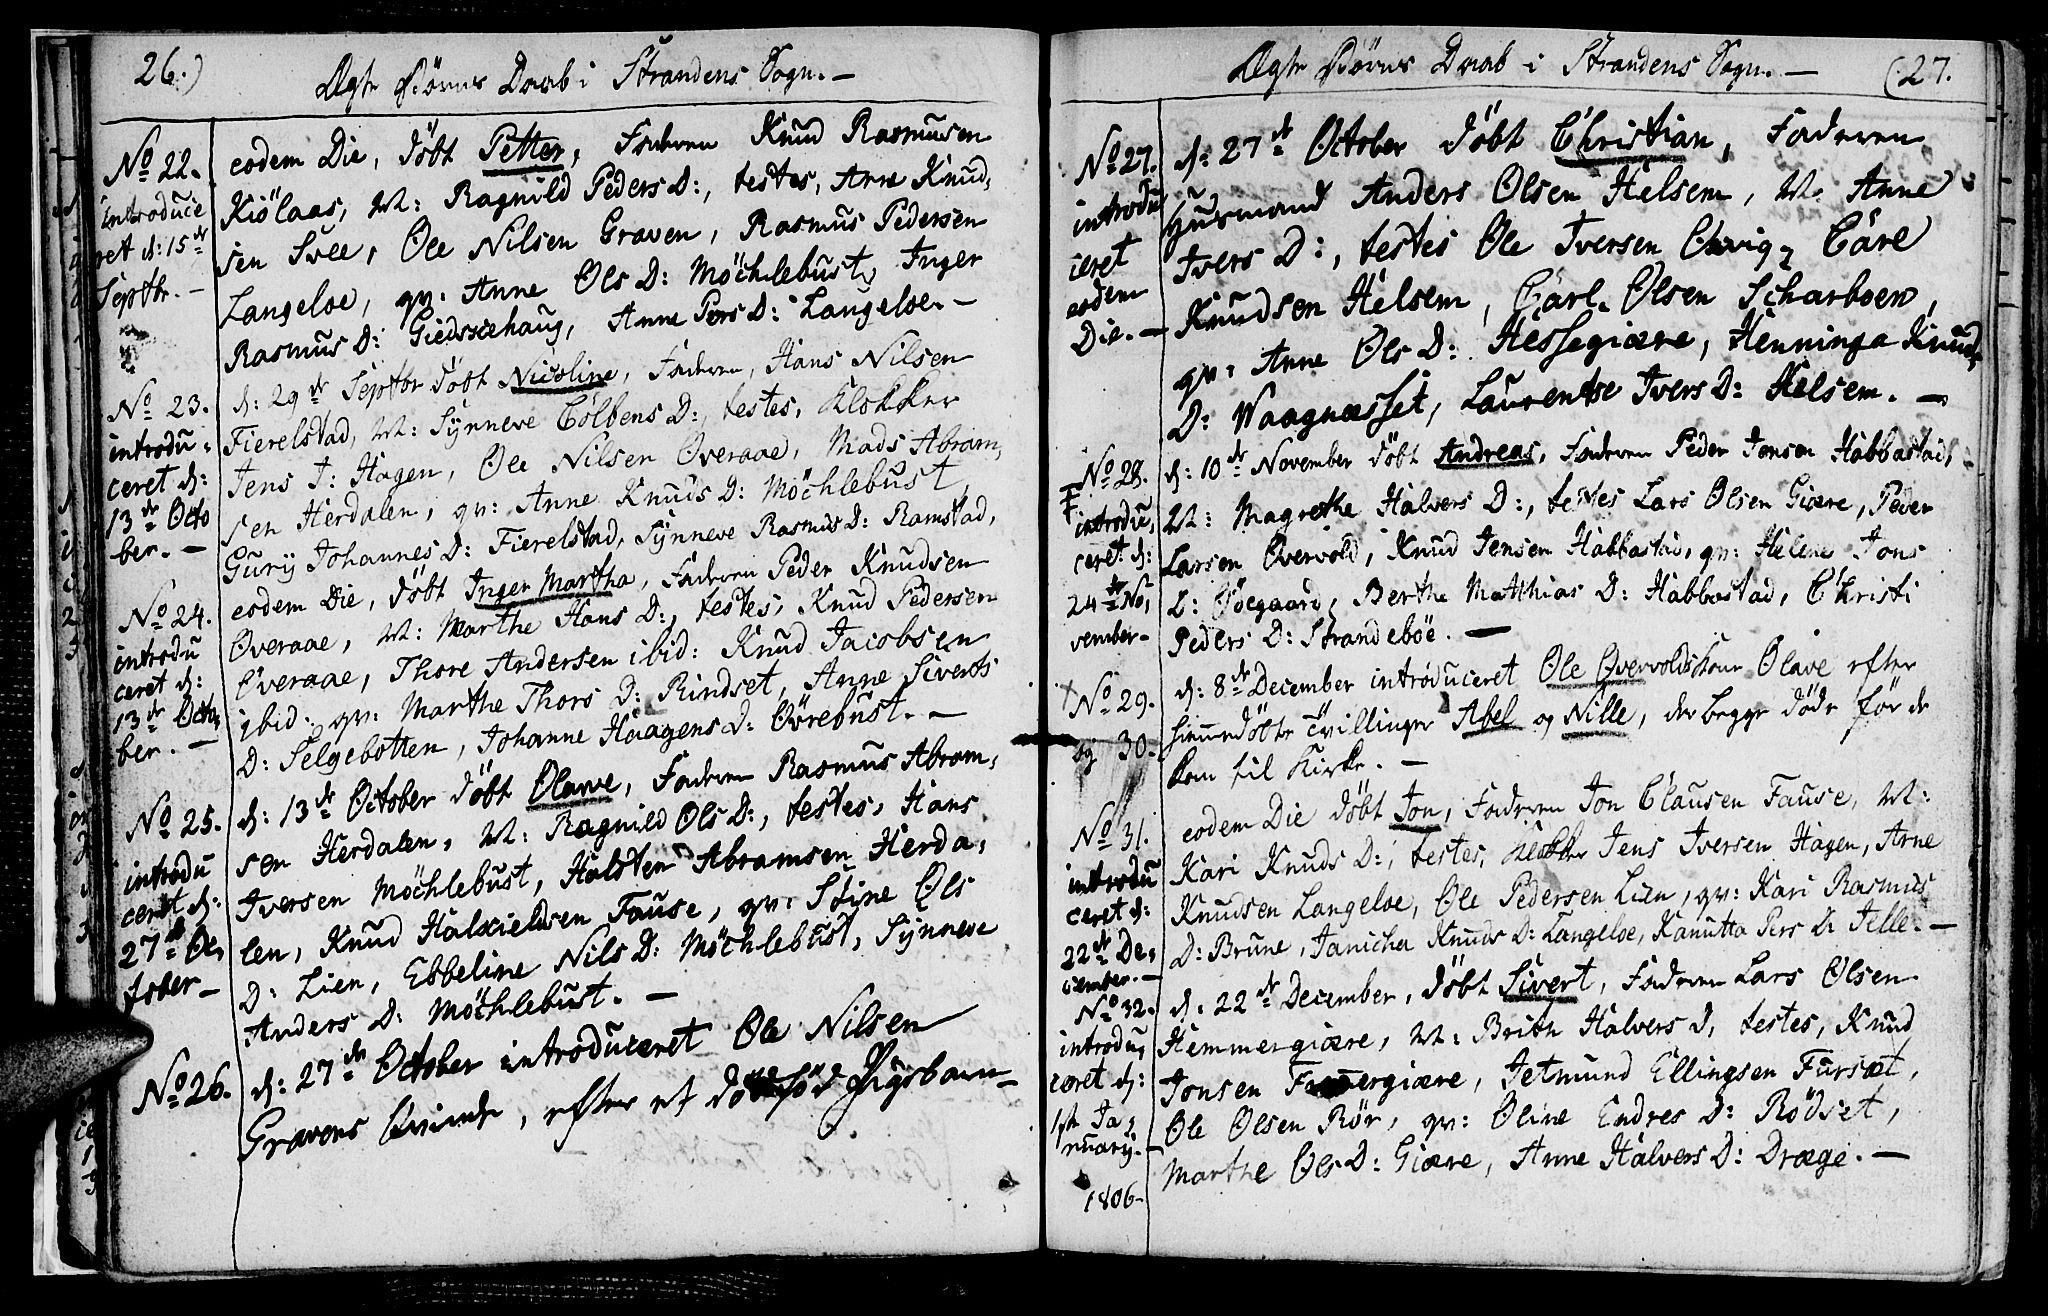 26.)
Ægte Børns Daab i Strandens Sogn. —
No 22.
introduce
ret d: 15de
Septbr. —
eodem Die, döbt Petter, Faderen Knud Rasmusen
Kiölaas, M: Ragnild Peders D:, testes, Arne Knud,
sen Svee, Ole Nilsen Graven, Rasmus Pedersen
Langeloe, qv: Anne Ols D: Möchlebust, Inger
Rasmus D: Giedschehaug, Anne Pers D: Langeloe. —
No 23.
introdu,
ceret d:
13de Octo
ber. —
d: 29de Septbr döbt Nicoline, Faderen, Hans Nilsen
Fierelstad, M: Synneve Colbens D:, testes, Klokker
Jens I: Hagen, Ole Nilsen Overaae, Mads Abram,
sen Herdalen, qv: Anne Knuds D: Möchlebust,
Gury Johannes D: Fierelstad, Synneve Rasmus D: Ramstad,
No 24.
introdu
ceret d:
13de Octo,
ber. —
eodem Die, döbt Inger Martha, Faderen Peder Knudsen
Overaae, M: Marthe Hans D:, testes, Knud Pedersen
Overaae, Thore Andersen ibid: Knud Jacobsen
ibid: qv: Marthe Thors D: Rindset, Anne Siverts
D: Selgebotten, Johanne Haagens D: Overebust. —
No 25.
introdu
ceret d:
27de Oc,
tober —
d: 13de October döbt Olave, Faderen Rasmus Abram,
sen Herdalen, M: Ragnild Ols D:, testes, Hans
Iversen Möchlebust, Halsten Abramsen Herda,
len, Knud Halkieldsen Fause, qv: Stine Ols
D: Lien, Ebbeline Nils D: Möchlebust, Synneve
Anders D: Möchlebust. —
No 26.
d: 27de October introduceret Ole Nilsen
Gravens Qvinde, efter et dödfød Pigebarn —
Ægte Børns Daab i Strandens Sogn. —
(27.
No 27.
introdu
ceret
eodem
Die. —
d: 27de October döbt Christian, Faderen
Huusmand Anders Olsen Helsem, M: Anne
Ivers D:, testes Ole Iversen, Cäre
Knudsen Helsem, Carl Olsen Scharboen,
qv: Anne Ols D: Hessegiære, Henninga Knud,
D: Waagnæsset, Laurentse Ivers D: Helsem. —
No 28.
introdu,
ceret d:
24de No,
vember —
d: 10de November döbt Andreas, Faderen Peder Jonsen Habbastad,
M: Magrethe Halvers D:, testes Lars Olsen Giære, Peder
Larsen Overvold, Knud Jensen Habbastad, qv: Helene Jons
D: Øvegaard, Berthe Mathias D: Habbastad, Christi
Peders D: Strandeböe. —
No 29.
og 30.
d: 8de December introduceret Ole Overvolds Kone Olave efter
hiemmedöbte Tvillinger Abel og Nille, der begge döde før de
kom til Kirke. —
No 31.
introdu
ceret d:
22de De,
cember. —
eodem Die döbt Jon, Faderen Jon Clausen Fause, M:
Kari Knuds D:, testes, Klokker Jens Iversen Hagen, Arne
Knudsen Langeloe, Ole Pedersen Lien, qv: Kari Rasmus
D: Brune, Janicha Knuds D: Langeloe, Kanutta Pers D: Jelle. —
No 32.
introdu,
ceret d:
1ste Ja,
nuary. —
1806 —
d: 22de December, döbt Sivert, Faderen Lars Olsen
Hemmergiære, M: Brith Halvers D, testes, Knud
Jonsen , Jetmund Ellingsen Fursæt,
Ole Olsen Rör, qv: Oline Endres D: Rödset,
Marthe Ols D: Giære, Anne Halvers D: Dræge. —